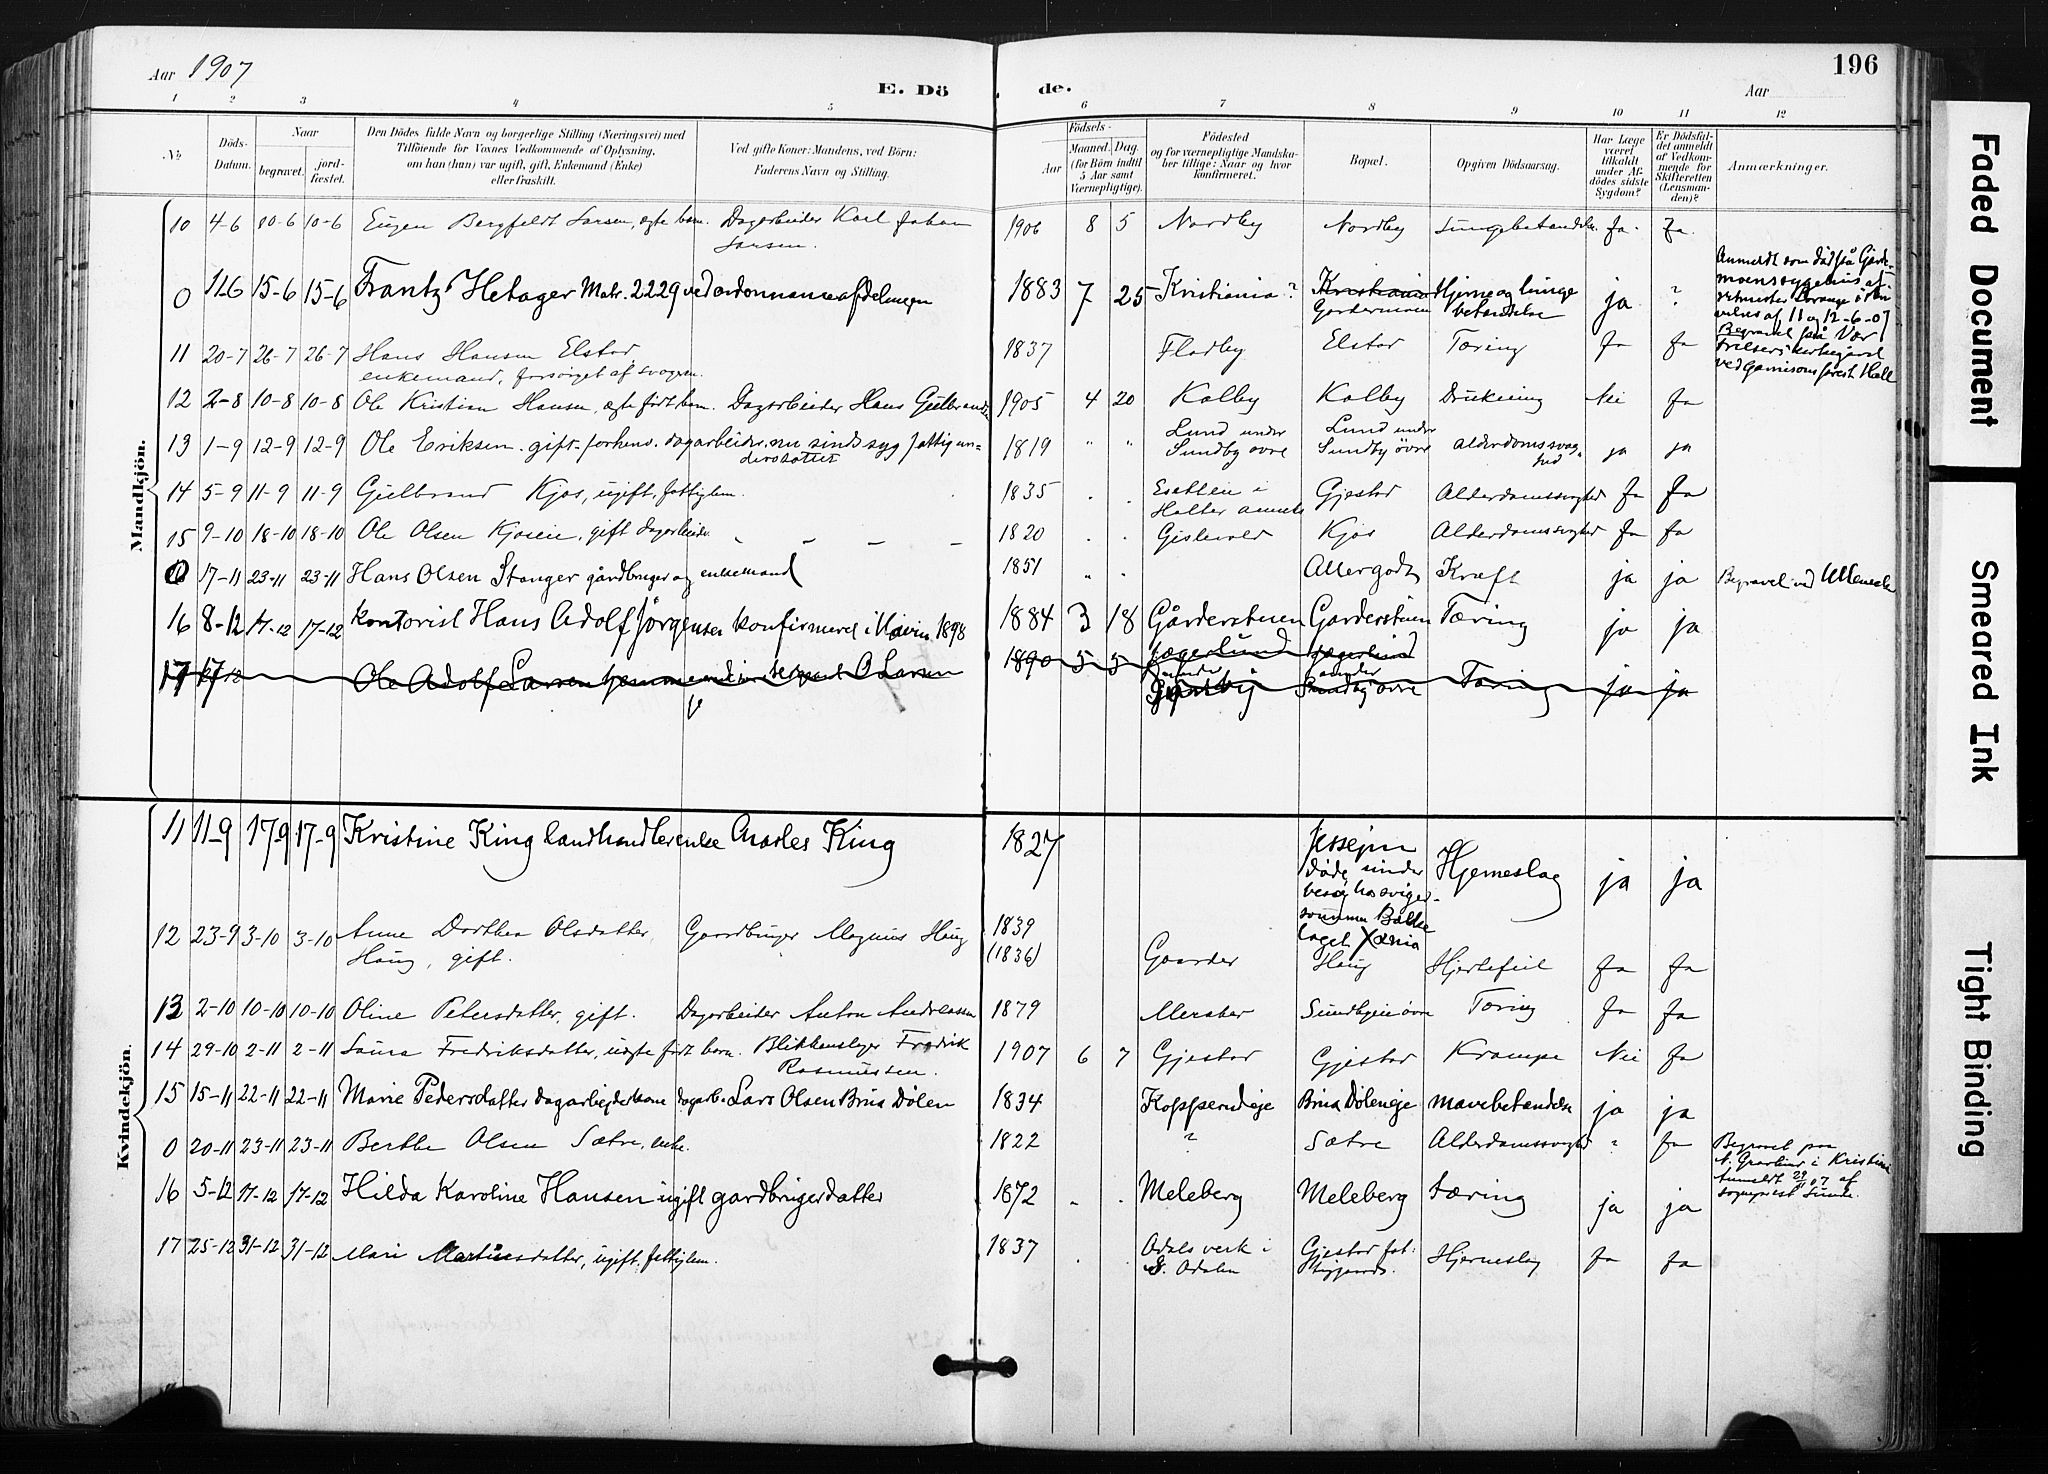 Aar 1907
E. Dö
de.
Aar
196
1 2 3 4 5 6 7 8 9 10 11 12
No
Döds-Datum.
Naar
begravet.
jord-fæstet.
Den Dödes fulde Navn og borgerlige Stilling (Næringsvei) med
Tilföiende for Voxnes Vedkommende af Oplysning,
om han (hun) var ugift, gift, Enkemand (Enke)
eller fraskilt.
Ved gifte Koner: Mandens, ved Börn:
Faderens Navn og Stilling.
Födsels-
Aar
Maaned. Dag.
(for Börn indtil
5 Aar samt
Værnepligtige).
Födested
og for værnepligtige Mandska-
ber tillige: Naar og hvor
konfirmeret.
Bopæl.
Opgiven Dödsaarsag.
Har Læge
været
tilkaldt
under Af-
dödes sidste
Sygdom?
Er Dödsfal-
det anmeldt
af Vedkom-
mende for
Skifteretten
(Lensman-
den)?
Anmærkninger.
Mandkjön.
10 4-6 10-6 10-6 Eugen Bergfeldt Larsen, ægte barn. Dagarbeider Karl Johan Larsen. 1906 8 5 Nordby Nordby Lungebetændelse Ja. Ja.
0 11-6 15-6 15-6 Frantz Hetager Matr. 2229 ved ordonnanceafdelingen 1883 7 25 Kristiania? Kristiania Gardermoen Hjerne og lunge betændelse ja ?
Anmeldt som död på Garder-
moens sygehus af
af 11 og 12-6-07
Begravet på Vor
Frelsers kirkegård
ved Garnisonsprest Hall
11 20-7 26-7 26-7 Hans Hansen Elstad, enkemand, forsörget af svogeren. 1837 Fladby Elstad Tæring Ja Ja
12 2-8 10-8 10-8 Ole Kristian Hansen, ægte födt barn. Dagarbeider Hans Gulbrands. 1905 4 20 Kolby Kolby Drukning Nei Ja
13 1-9 12-9 12-9 Ole Eriksen. gift. forhenv. dagarbeider. nu sindssyg fattigun-derstöttet 1819 " " Lund under Sundby övre Lund under Sundby övre Alderdomssvaghed ja ja
14 5-9 11-9 11-9 Gulbrand Kjos, ugift, fattiglem. 1835 . . i Holter annex Gjestad Alderdomssvaghed Ja Ja
15 9-10 18-10 18-10 Ole Olsen Kjoseie, gift dagarbeider. 1820 . . Gislevold Kjos Alderdomssvaghed Ja Ja
0 17-11 23-11 23-11 Hans Olsen Stanger gårdbruger og enkemand 1851 " . Allergodt Kræft ja ja Begravet ved Ullensak.
16 8-12 17-12 17-12 kontorist Hans Adolf Jörgensen konfirmeret i Navin. 1898 1884 3 18 Gårderstuen Garderstuen Tæring ja ja
17 17-12 Ole Adolf Larsen O Larsen 1890 5 5 Jægerlund under Jægerlund under Sundby övre Tæring ja ja
Kvindekjön.
11 11-9 17-9 17-9 Kristine King landhandlerenke Charles King 1827 Jessejm döde under besög hos sviger-sönnen laget Xania Hjerneslag ja ja
12 23-9 3-10 3-10 Anne Dorthea Olsdatter Haug, gift. Gaardbruger Magnus Haug 1839 (1836) Gaarder Haug Hjertefeil Ja Ja
13 2-10 10-10 10-10 Oline Petersdatter, gift. Dagarbeider Anton Andreassen 1879 Merstad Sundbyeie övre Tæring Ja Ja
14 29-10 2-11 2-11 Laura Fredriksdatter, uægte födt barn. Blikkenslager Fredrik Rasmussen. 1907 6 7 Gjestad Gjestad Krampe Nei Ja
15 15-11 22-11 22-11 Marie Pedersdatter dagarbejderkone dagarb. Lars Olsen Brua Dölen 1834 Kopperudeje Brua Döleneje mavebetændelse ja ja
0 20-11 23-11 23-11 Berthe Olsen Sætre, enke. 1822 ? Sætre Alderdomssvaghed ? Ja
Begravet paa
N. Gravlund i Kristiania
Anmeldt 29/11 07 af
sogneprest
16 5-12 17-12 17-12 Hilda Karoline Hansen ugift gardbrugerdatter 1872 . . Meleberg Meleberg Tæring ja ja
17 25-12 31-12 31-12 Mari Martinsdatter, ugift, fattiglem. 1837 . Odals verk i S. Odalen Gjestad fat-tiggaard. Hjerneslag Ja Ja
Faded Document
Smeared Ink
Tight Binding